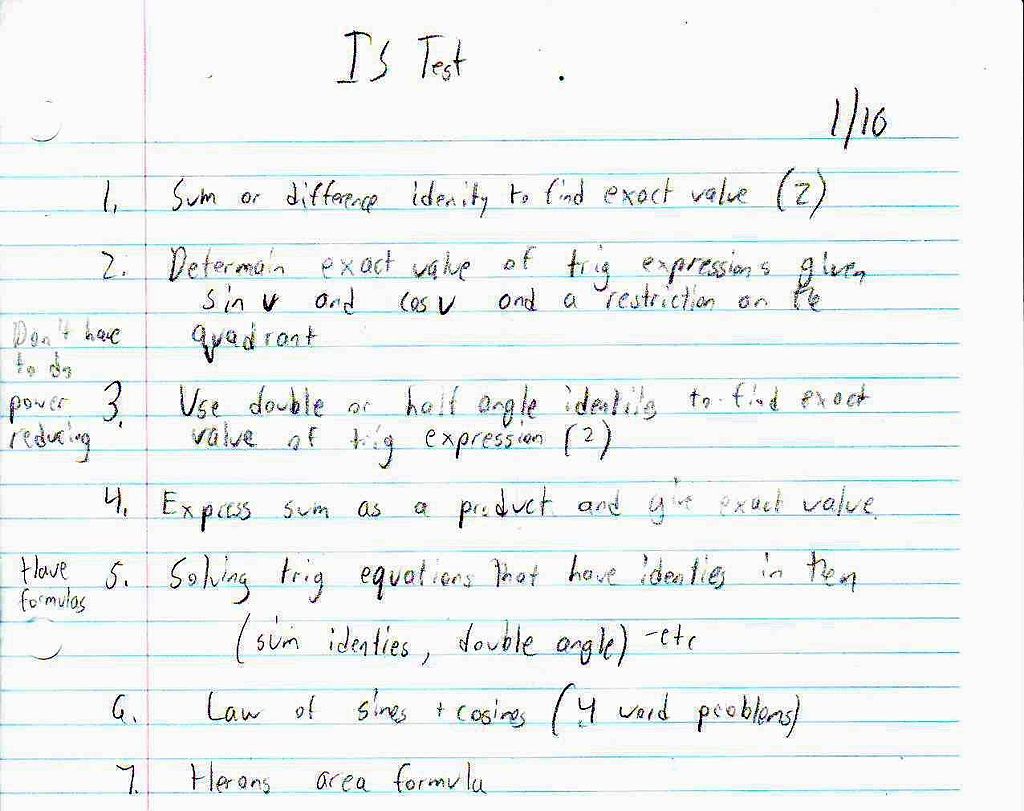 IS Test
1/10
1. Sum or difference idenity to find exact value (2)
2. Determain exact value of trig expressions given
sin v and cos v and a restriction on the
quadrant
Don't have
to do
power
reducing
3. Use double or half angle identitis to find exact
value of trig expression (2)
4. Express sum as a product and give exact value
Have
formulas
5. Solving trig equations that have identies in them
(sum identies, double angle) -etc
6. Law of sines + cosines (4 word problems)
7. Herons area formula